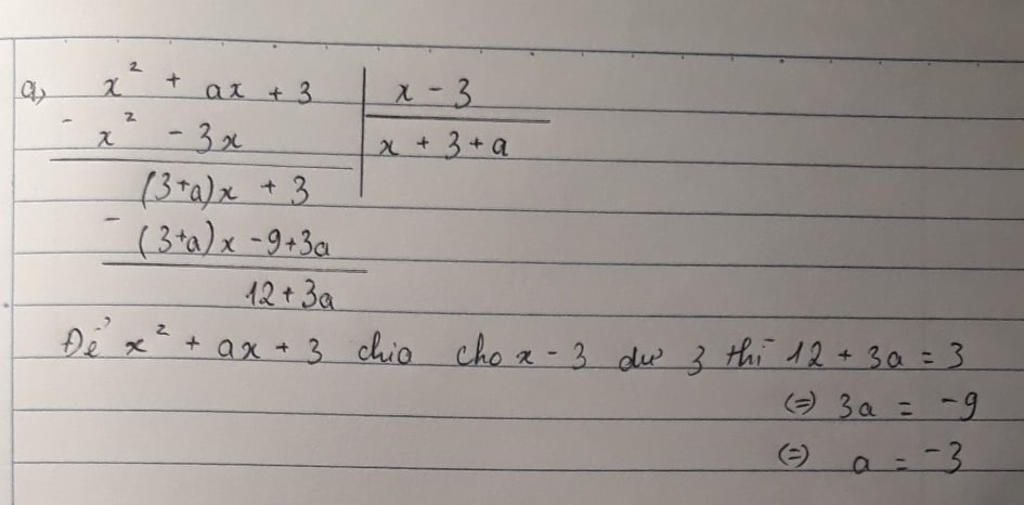 a, x² + ax + 3 | x - 3
- x² - 3x | x + 3 + a
(3+a)x + 3
- (3+a)x - 9+3a
12 + 3a
Để x² + ax + 3 chia cho x - 3 dư 3 thì 12 + 3a = 3
(=) 3a = -9
(=) a = -3